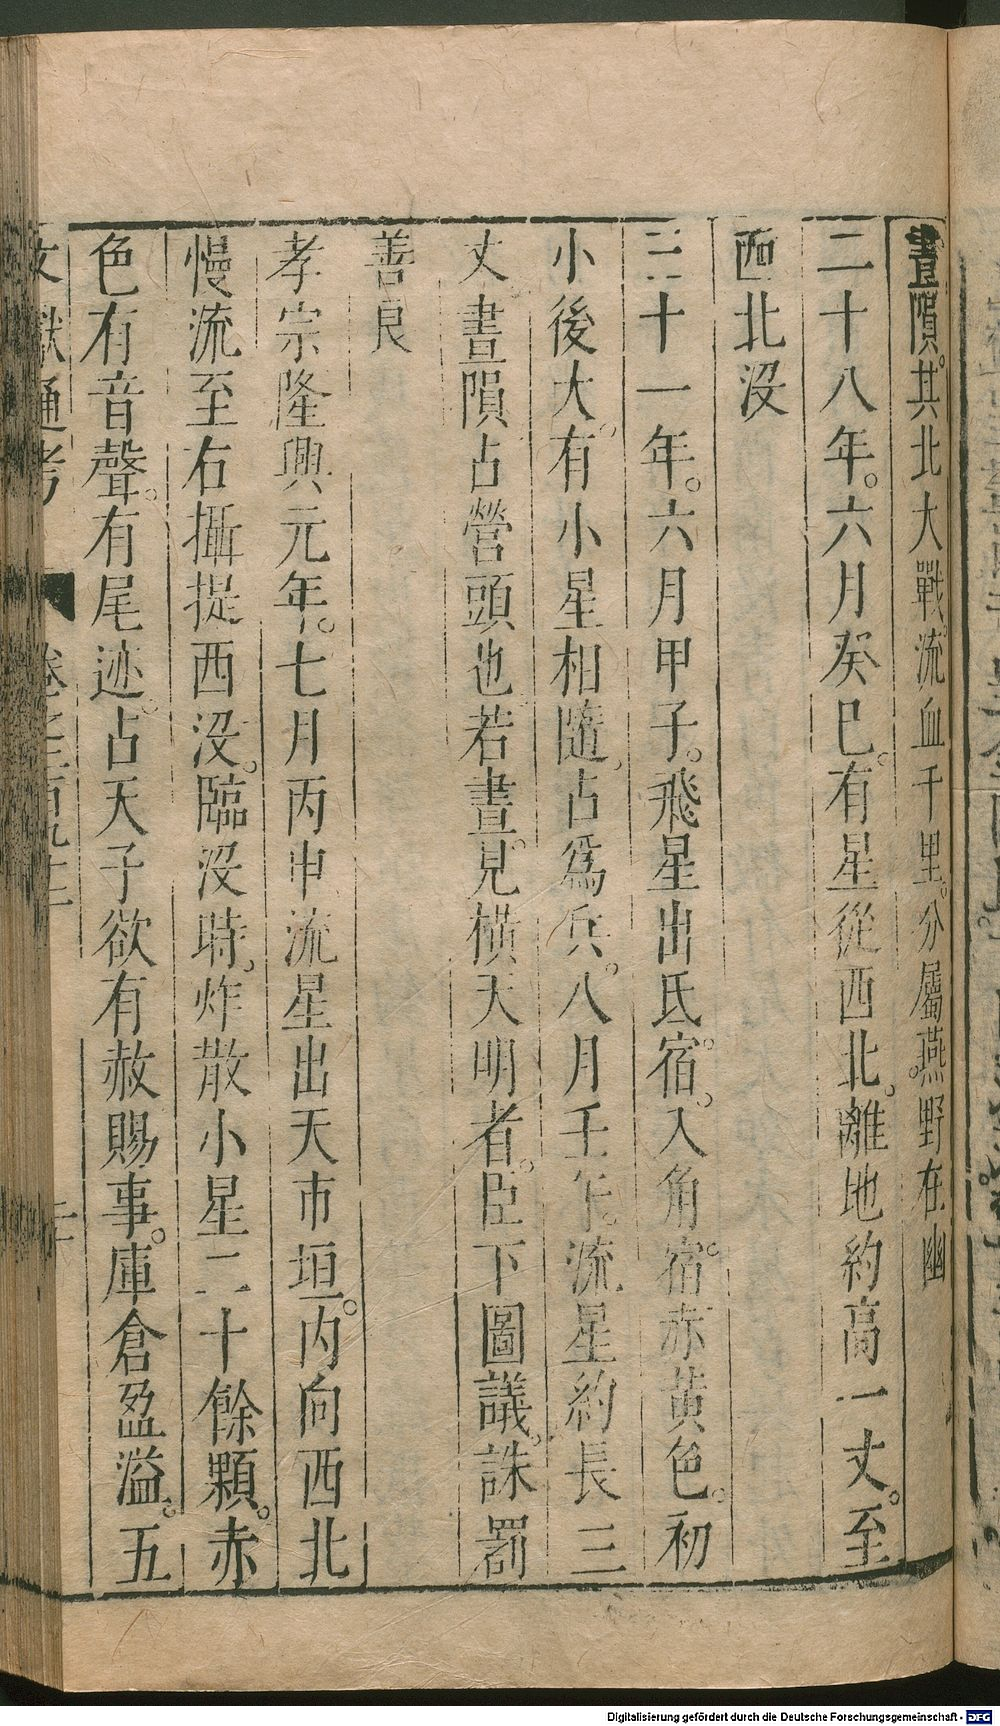 晝隕。其北大戰流血千里。分屬燕。野在幽
二十八年。六月癸巳。有星從西北。離地約高一丈。至
西北沒
三十一年。六月甲子。飛星出氐宿。入角宿。赤黃色。初
小後大。有小星相隨。占爲兵。八月壬午。流星約長三
丈。晝隕占營頭也。若晝見橫天明者。臣下圖議。誅罰
善良
孝宗隆興元年。七月丙申流星出天市垣。内向西北
慢流至右攝提西沒。臨沒時。炸散小星二十餘顆。赤
色有音聲。有尾迹。占天子欲有赦賜事。庫倉盈溢。五
文獻通考
Digitalisierung gefördert durch die Deutsche Forschungsgemeinschaft - DFG